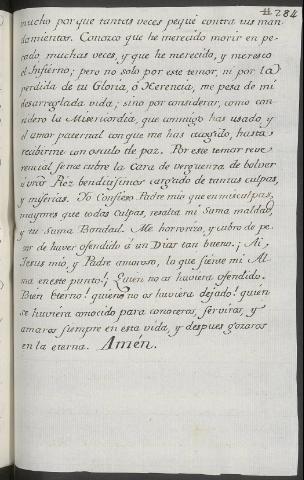 284
mucho por que tantas veces pequè contra tus man-
damientos. Conozco que he merecido morir en pe-
cado muchas veces, y que he merecido, y meresco
el Infierno; pero no solo por este temor, ni por la
perdida de tu Gloria, ò Herencia, me pesa de mi
desarreglada vida; sino por considerar, como con-
sidero la Misericordia, que conmigo has usado, y
el amor paternal con que me has aguardado, hasta
recibirme con osculo de paz. Por este temor reve-
rencial, se me cubre la Cara de verguenza de bolver
à tus Piez benditisimos cargado de tantas culpas,
y miserias. Yo Confieso Padre mio que en mis culpas,
mayores que todas culpas, resalta mi suma maldad,
y tu suma Bondad. Me horrorizo, y cubro de pe-
sar de haver ofendido à un Dios tan bueno. ¡Ai,
Jesus mio, y Padre amoroso, lo que siente mi Al-
ma en este punto! ¡Quien no os huviera ofendido.
Bien Eterno! quien no os huviera dejado! quien
os huviera conocido para conoceros, serviros, y
amaros siempre en esta vida, y despues gozaros
en la eterna. Amén.